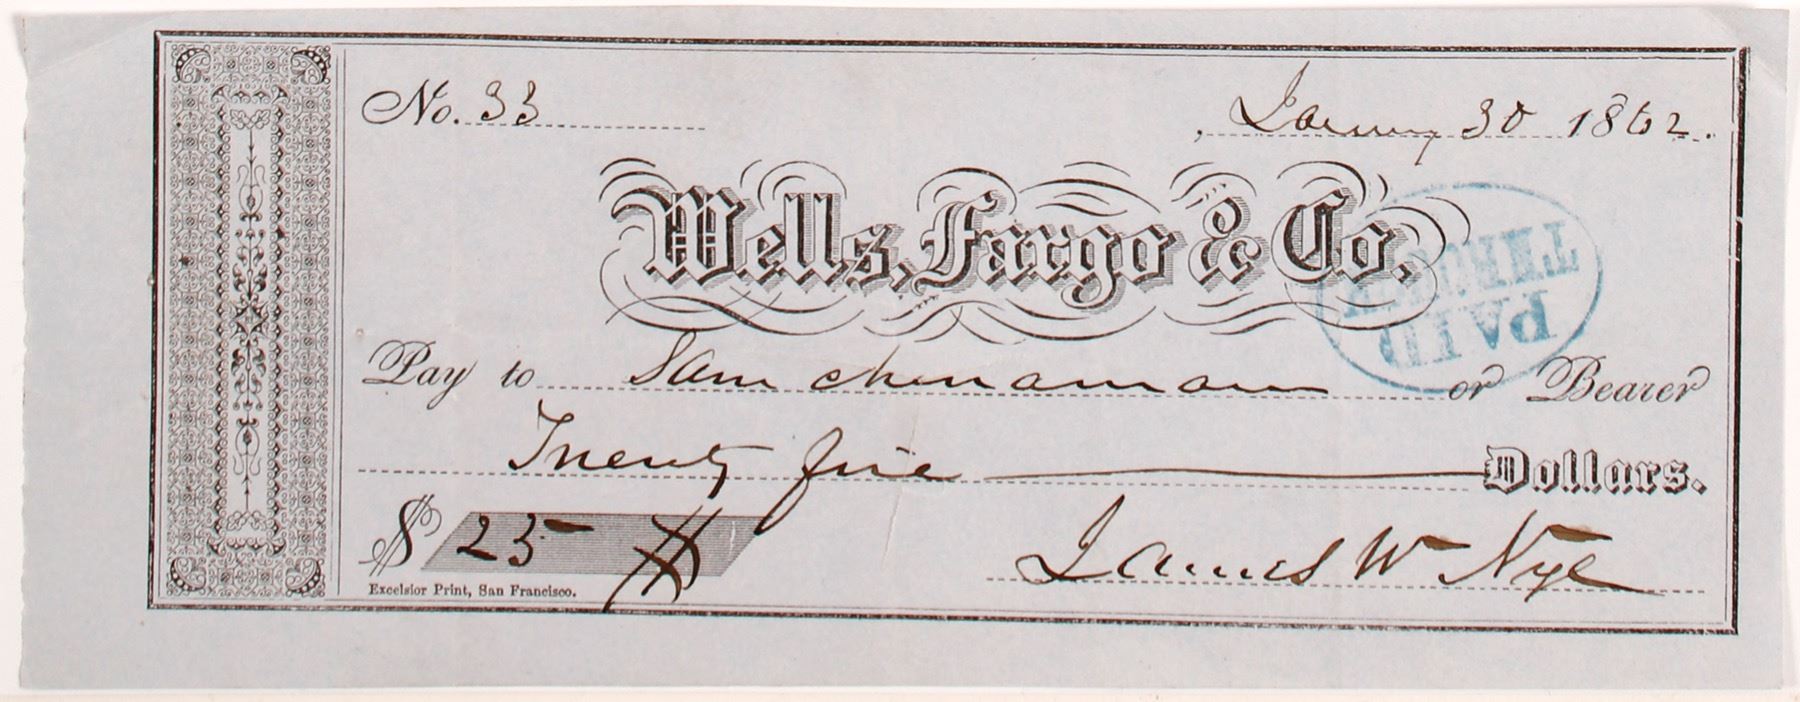 No. 33
, January 30 1862.
Wells, Fargo & Co.
PAID
Pay to Sam chinaman or Bearer
Twenty five Dollars.
$ 25
James W Nye
Excelsior Print, San Francisco.